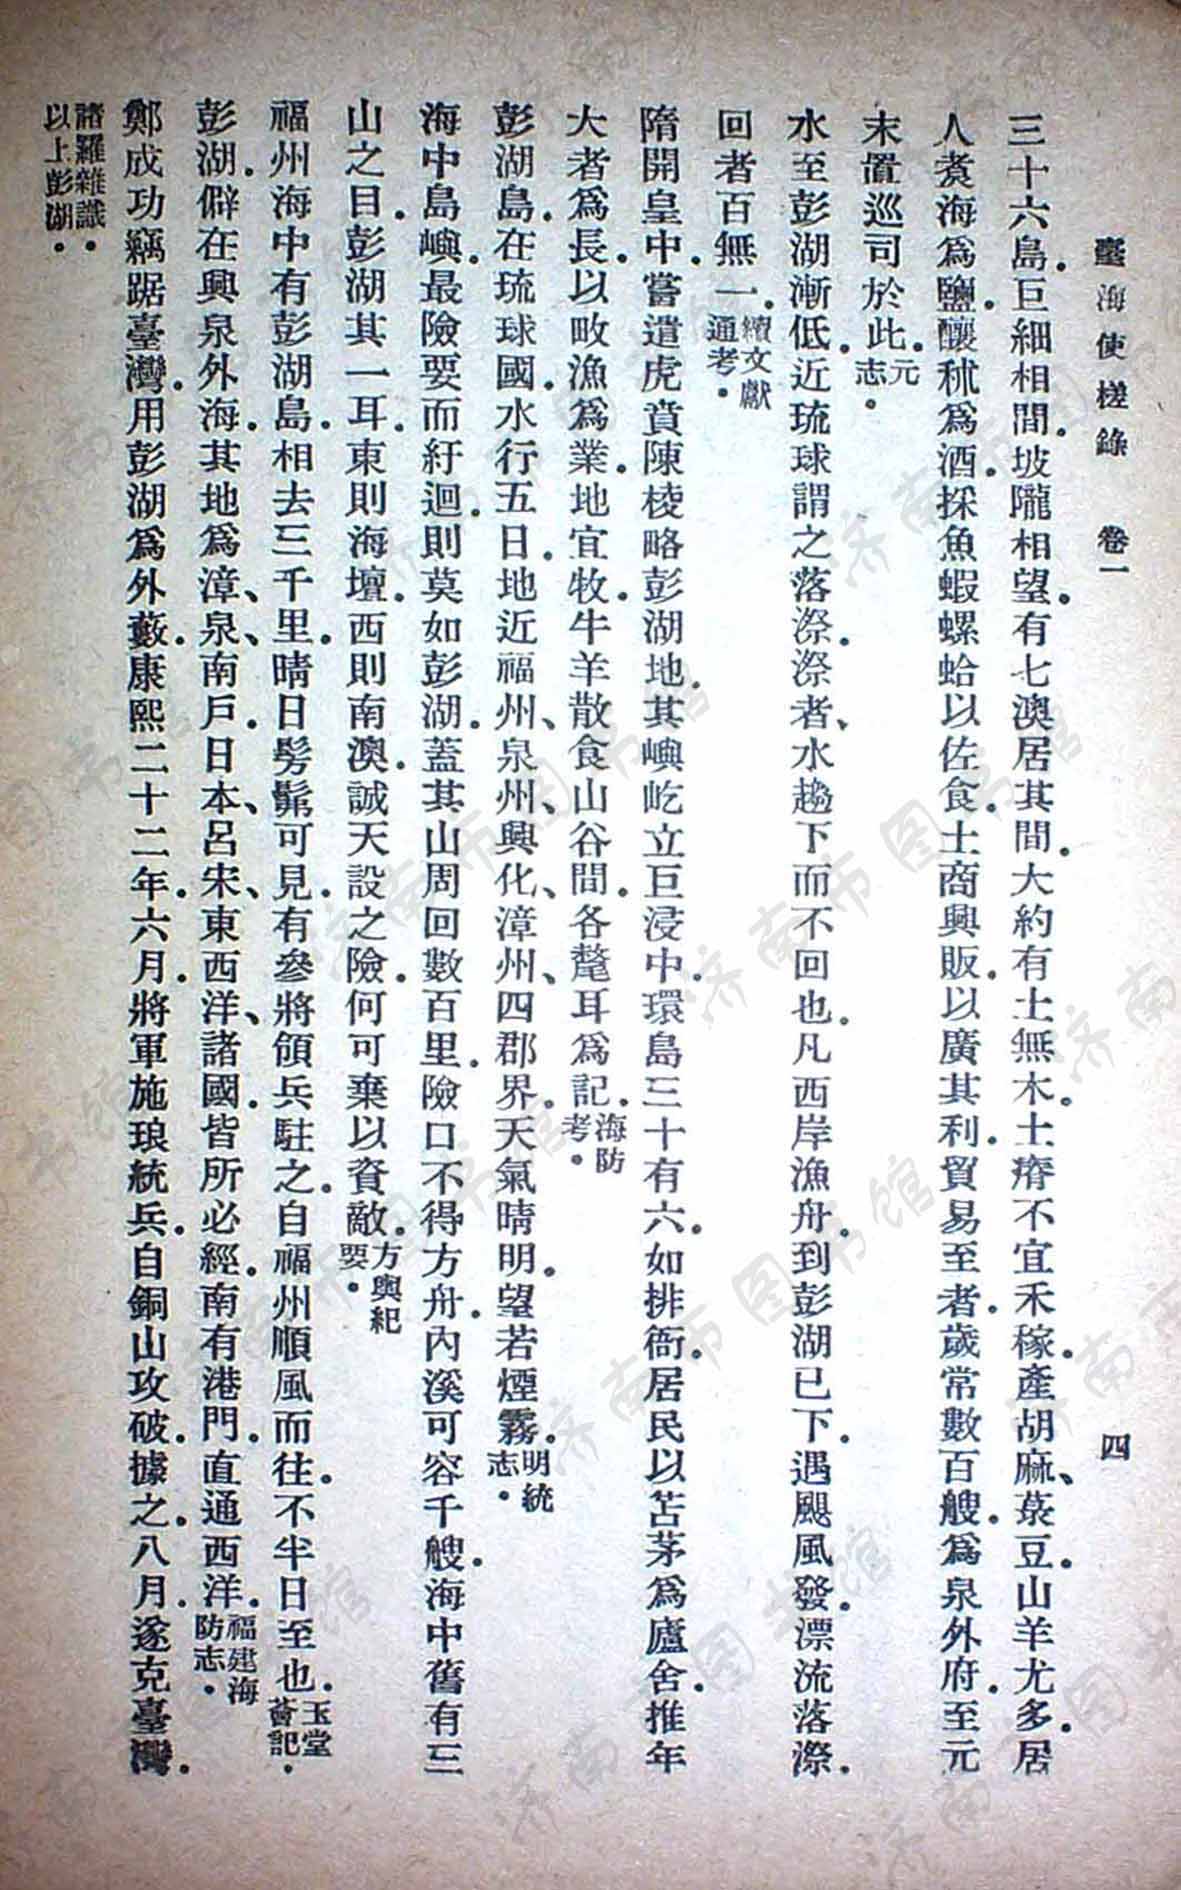 臺海使槎錄　卷一　四
三十六島．巨細相間．坡隴相望．有七澳居其間．大約有土無木．土瘠不宜禾稼．產胡麻、菉豆．山羊尤多．居
人煑海爲鹽．釀秫爲酒．採魚蝦螺蛤以佐食．土商興販．以廣其利．貿易至者．歲常數百艘．爲泉外府．至元
末置巡司於此．元志．
水至彭湖漸低．近琉球謂之落漈．漈者、水趨下而不回也．凡西岸漁舟．到彭湖已下．遇颶風發．漂流落漈．
回者百無一．續文獻通考．
隋開皇中．嘗遣虎賁陳棱略彭湖地．其嶼屹立巨浸中．環島三十有六．如排衙．居民以苫茅爲廬舍．推年
大者爲長．以畋漁爲業．地宜牧．牛羊散食山谷間．各氂耳爲記．海防考．
彭湖島．在琉球國．水行五日．地近福州、泉州、興化、漳州、四郡界．天氣晴明．望若煙霧．明統志．
海中島嶼．最險要而紆迴．則莫如彭湖．蓋其山周回數百里．險口不得方舟．內溪可容千艘．海中舊有三
山之目．彭湖其一耳．東則海壇．西則南澳．誠天設之險．何可棄以資敵．方輿紀要．
福州海中有彭湖島．相去三千里．晴日髣髴可見．有參將領兵駐之．自福州順風而往．不半日至也．玉堂薈記．
彭湖．僻在興泉外海．其地爲漳、泉、南戶．日本、呂宋、東西洋、諸國．皆所必經．南有港門．直通西洋．福建海防志．
鄭成功竊踞臺灣．用彭湖爲外藪．康熙二十二年．六月．將軍施琅統兵．自銅山攻破．據之．八月．遂克臺灣．
諸羅雜識．以上彭湖．